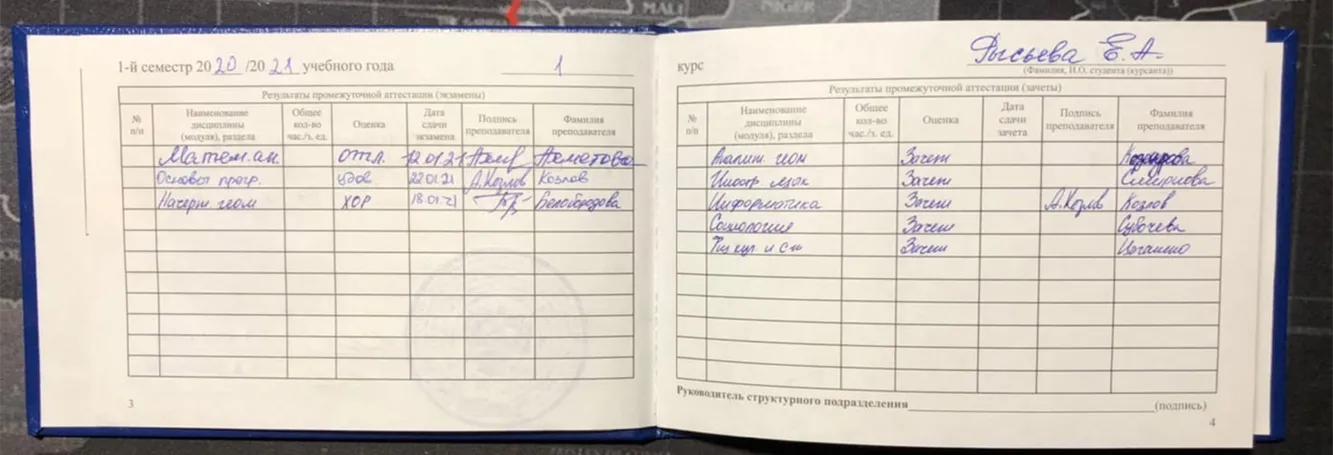 MALI
NIGER
1-й семестр 2020/2021 учебного года 1
Результаты промежуточной аттестации (экзамены)
№ п/п Наименование дисциплины (модуля), раздела Общее кол-во час./з. ед. Оценка Дата сдачи экзамена Подпись преподавателя Фамилия преподавателя
Матем. ан. отл. 12.01.21 Ахметова
Основы прогр. удов 22.01.21 А.Козлов Козлов
Начерт. геом хор 18.01.21 Белобородова
3
курс Рысьева Е.А.
(Фамилия, И.О. студента (курсанта))
Результаты промежуточной аттестации (зачеты)
№ п/п Наименование дисциплины (модуля), раздела Общее кол-во час./з. ед. Оценка Дата сдачи зачета Подпись преподавателя Фамилия преподавателя
Аналит. геом Зачет
Иностр язык Зачет
Информатика Зачет А.Козлов Козлов
Социология Зачет Субочева
Зачет
Руководитель структурного подразделения (подпись)
4